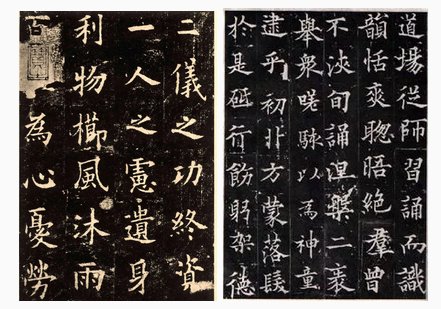 二儀之功終資
一人之慮遺身
利物櫛風沐雨
百為心憂勞
道場従師習誦而識
韻恬爽聦晤絶羣曾
不浹旬誦涅槃二袠
舉衆嗟駭以為神童
逮乎初丱方蒙落髮
於是砥行飭躬架德